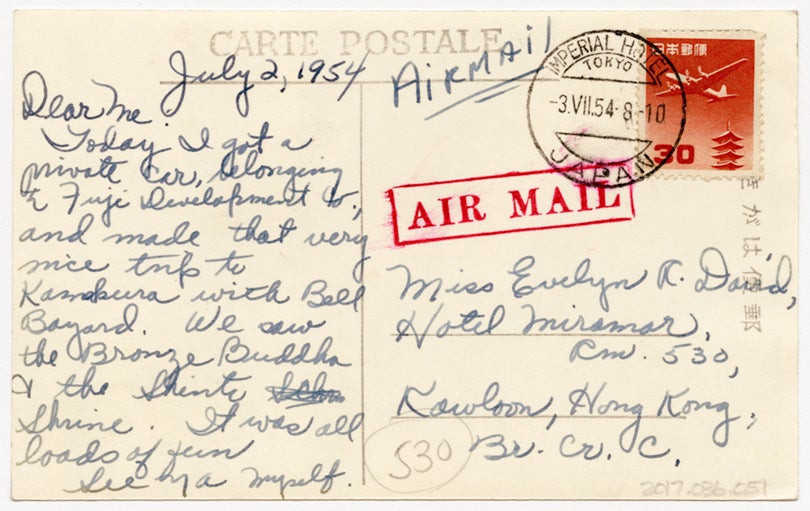 CARTE POSTALE
July 2, 1954
Dear Me
Today I got a
private car, belonging
to Fuji Development Co.,
and made that very
nice trip to
Kamakura with Bell
Bayard. We saw
the Bronze Buddha
& the Shinto
Shrine. It was all
loads of fun
See by a myself.
AIRMAIL
IMPERIAL HOTEL
TOKYO
-3.VII.54-8-10
JAPAN
日本郵便
30
AIR MAIL
Miss Evelyn R. David,
Hotel Miramar,
Rm. 530,
Kowloon, Hong Kong,
Br. Cr. C.
530
きがは便郵
2017.036.051